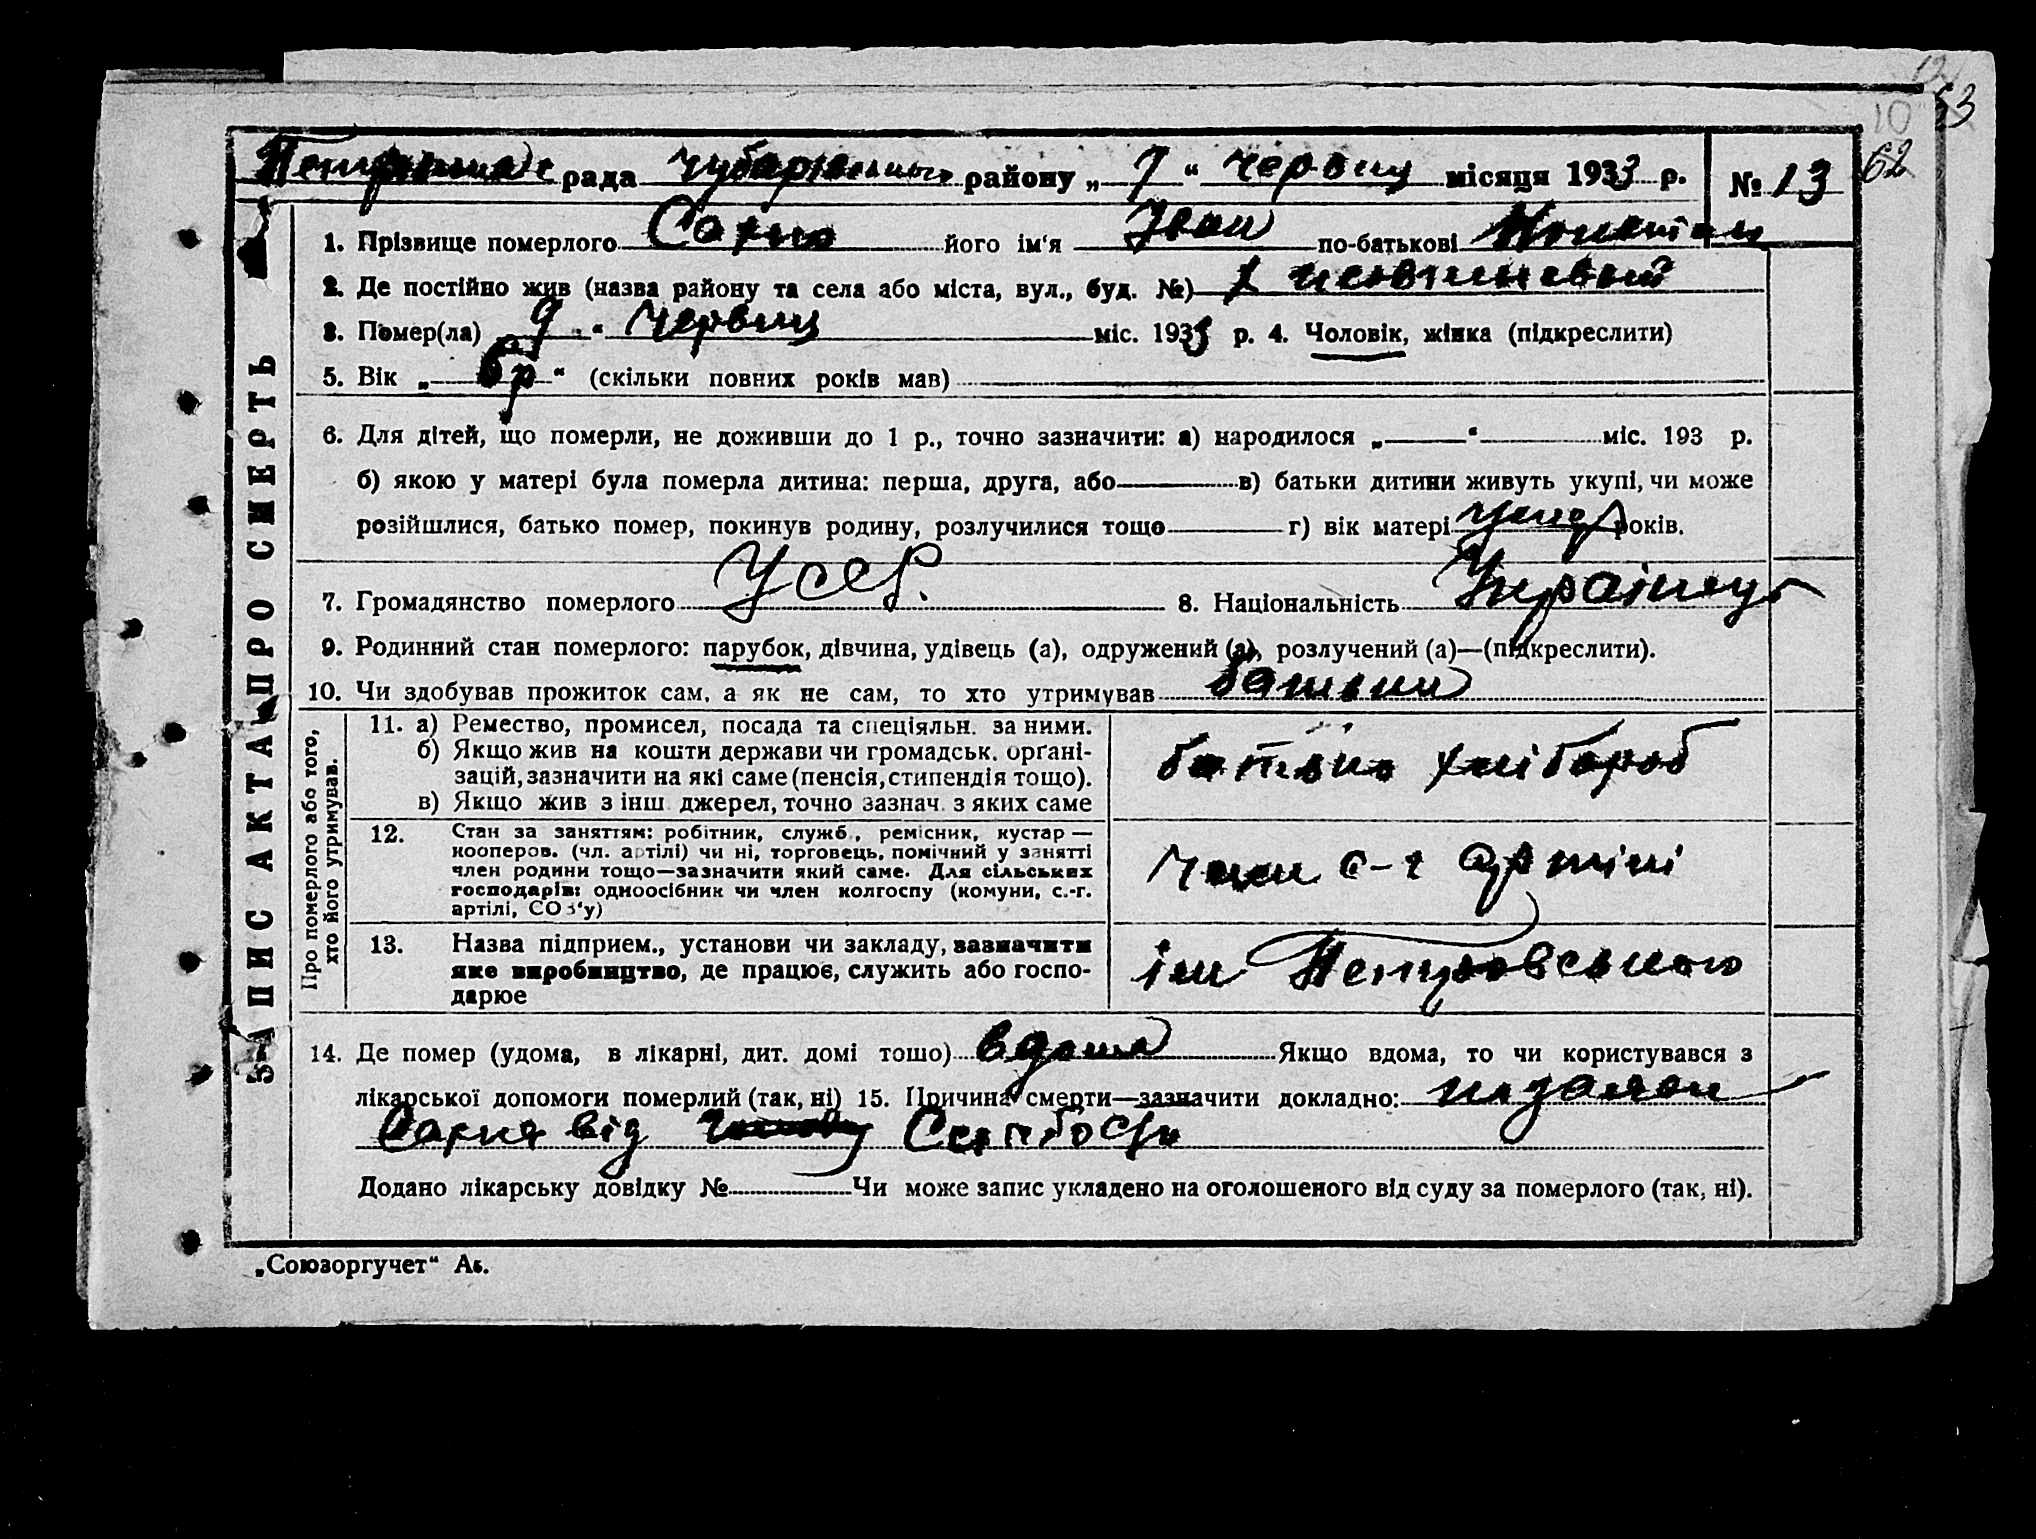 62
63
рада Чубарівського району „ 7 “ червня місяця 1933 р. № 13
ЗАПИС АКТА ПРО СМЕРТЬ
1. Прізвище померлого його ім‘я Іван по-батькові
2. Де постійно жив (назва району та села або міста, вул., буд. №)
3. Помер(ла) „ “ червня міс. 1933 р. 4. Чоловік, жінка (підкреслити)
5. Вік „ 6 р “ (скільки повних років мав)
6. Для дітей, що померли, не доживши до 1 р., точно зазначити: а) народилося „ “ міс. 193 р.
б) якою у матері була померла дитина: перша, друга, або в) батьки дитини живуть укупі, чи може
розійшлися, батько помер, покинув родину, розлучилися тощо г) вік матері років.
7. Громадянство померлого УССР. 8. Національність
9. Родинний стан померлого: парубок, дівчина, удівець (а), одружений (а), розлучений (а)—(підкреслити).
10. Чи здобував прожиток сам, а як не сам, то хто утримував батьки
Про померлого або того, хто його утримував.
11. а) Ремество, промисел, посада та спеціяльн. за ними.
б) Якщо жив на кошти держави чи громадськ. орґані-
зацій, зазначити на які саме (пенсія, стипендія тощо).
в) Якщо жив з інш. джерел, точно зазнач. з яких саме
батько хлібороб
12. Стан за заняттям: робітник, служб., ремісник, кустар —
кооперов. (чл. артілі) чи ні, торговець, помічний у занятті
член родини тощо—зазначити який саме. Для сільських
господарів: одноосібник чи член колгоспу (комуни, с.-г.
артілі, СОЗ‘у)
член с-г артілі
13. Назва підприєм., установи чи закладу, зазначити
яке виробництво, де працює, служить або госпо-
дарює
ім Петровського
14. Де помер (удома, в лікарні, дит. домі тощо) вдома Якщо вдома, то чи користувався з
лікарської допомоги померлий (так, ні) 15. Причина смерти—зазначити докладно:
від
Додано лікарську довідку № Чи може запис укладено на оголошеного від суду за померлого (так, ні).
„Союзоргучет“